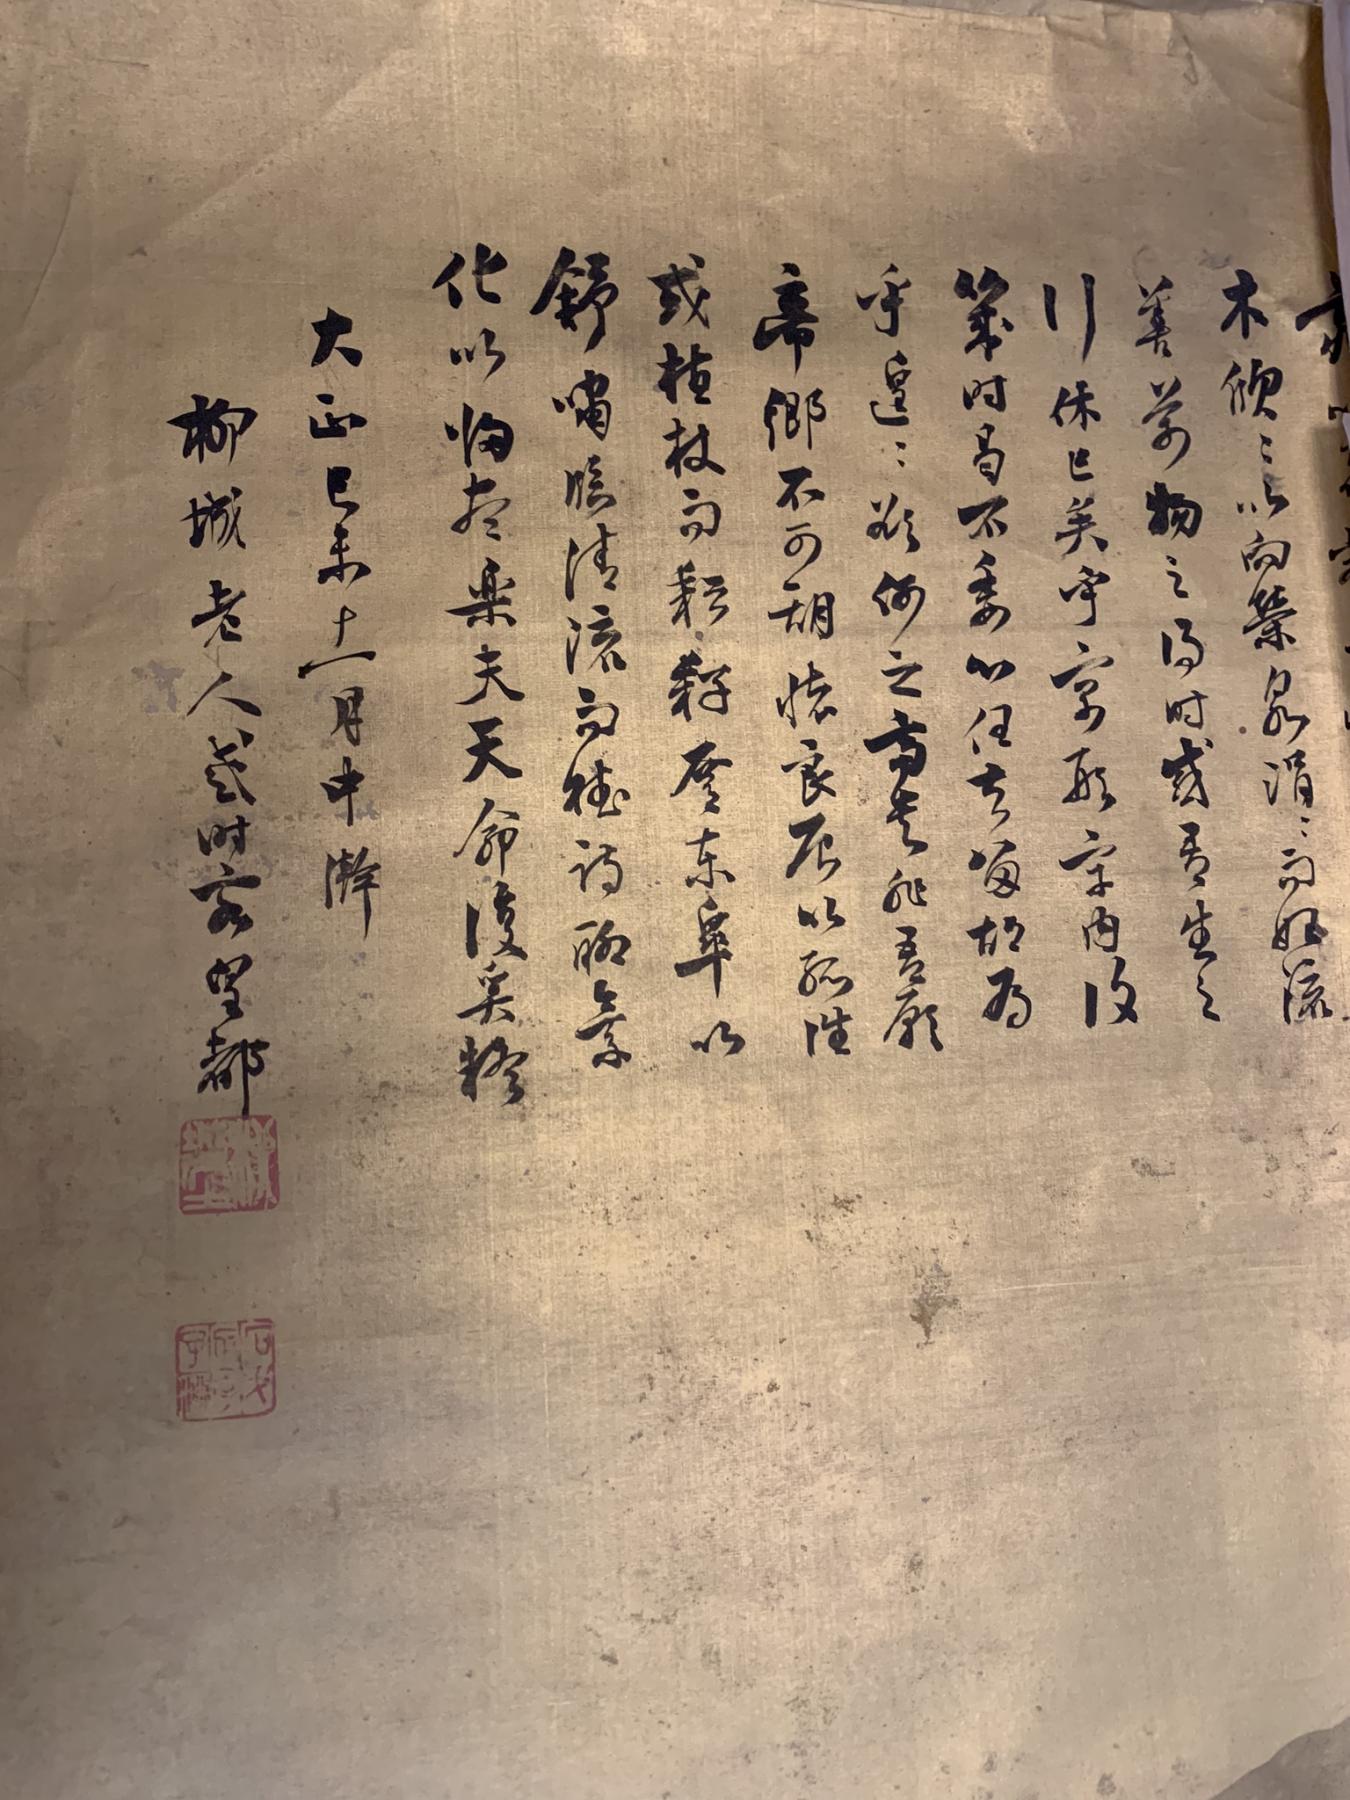 木欣〻以向榮泉涓〻而始流
善萬物之得時感吾生之
行休已矣乎寓形宇内復
幾時曷不委心任去留胡為
乎遑〻欲何之富貴非吾願
帝郷不可期懐良辰以孤往
或植杖而耘耔登東皐以
舒嘯臨清流而賦詩聊乗
化以帰尽楽夫天命復奚疑
大正己未十一月中澣
柳城老人 時客皇都